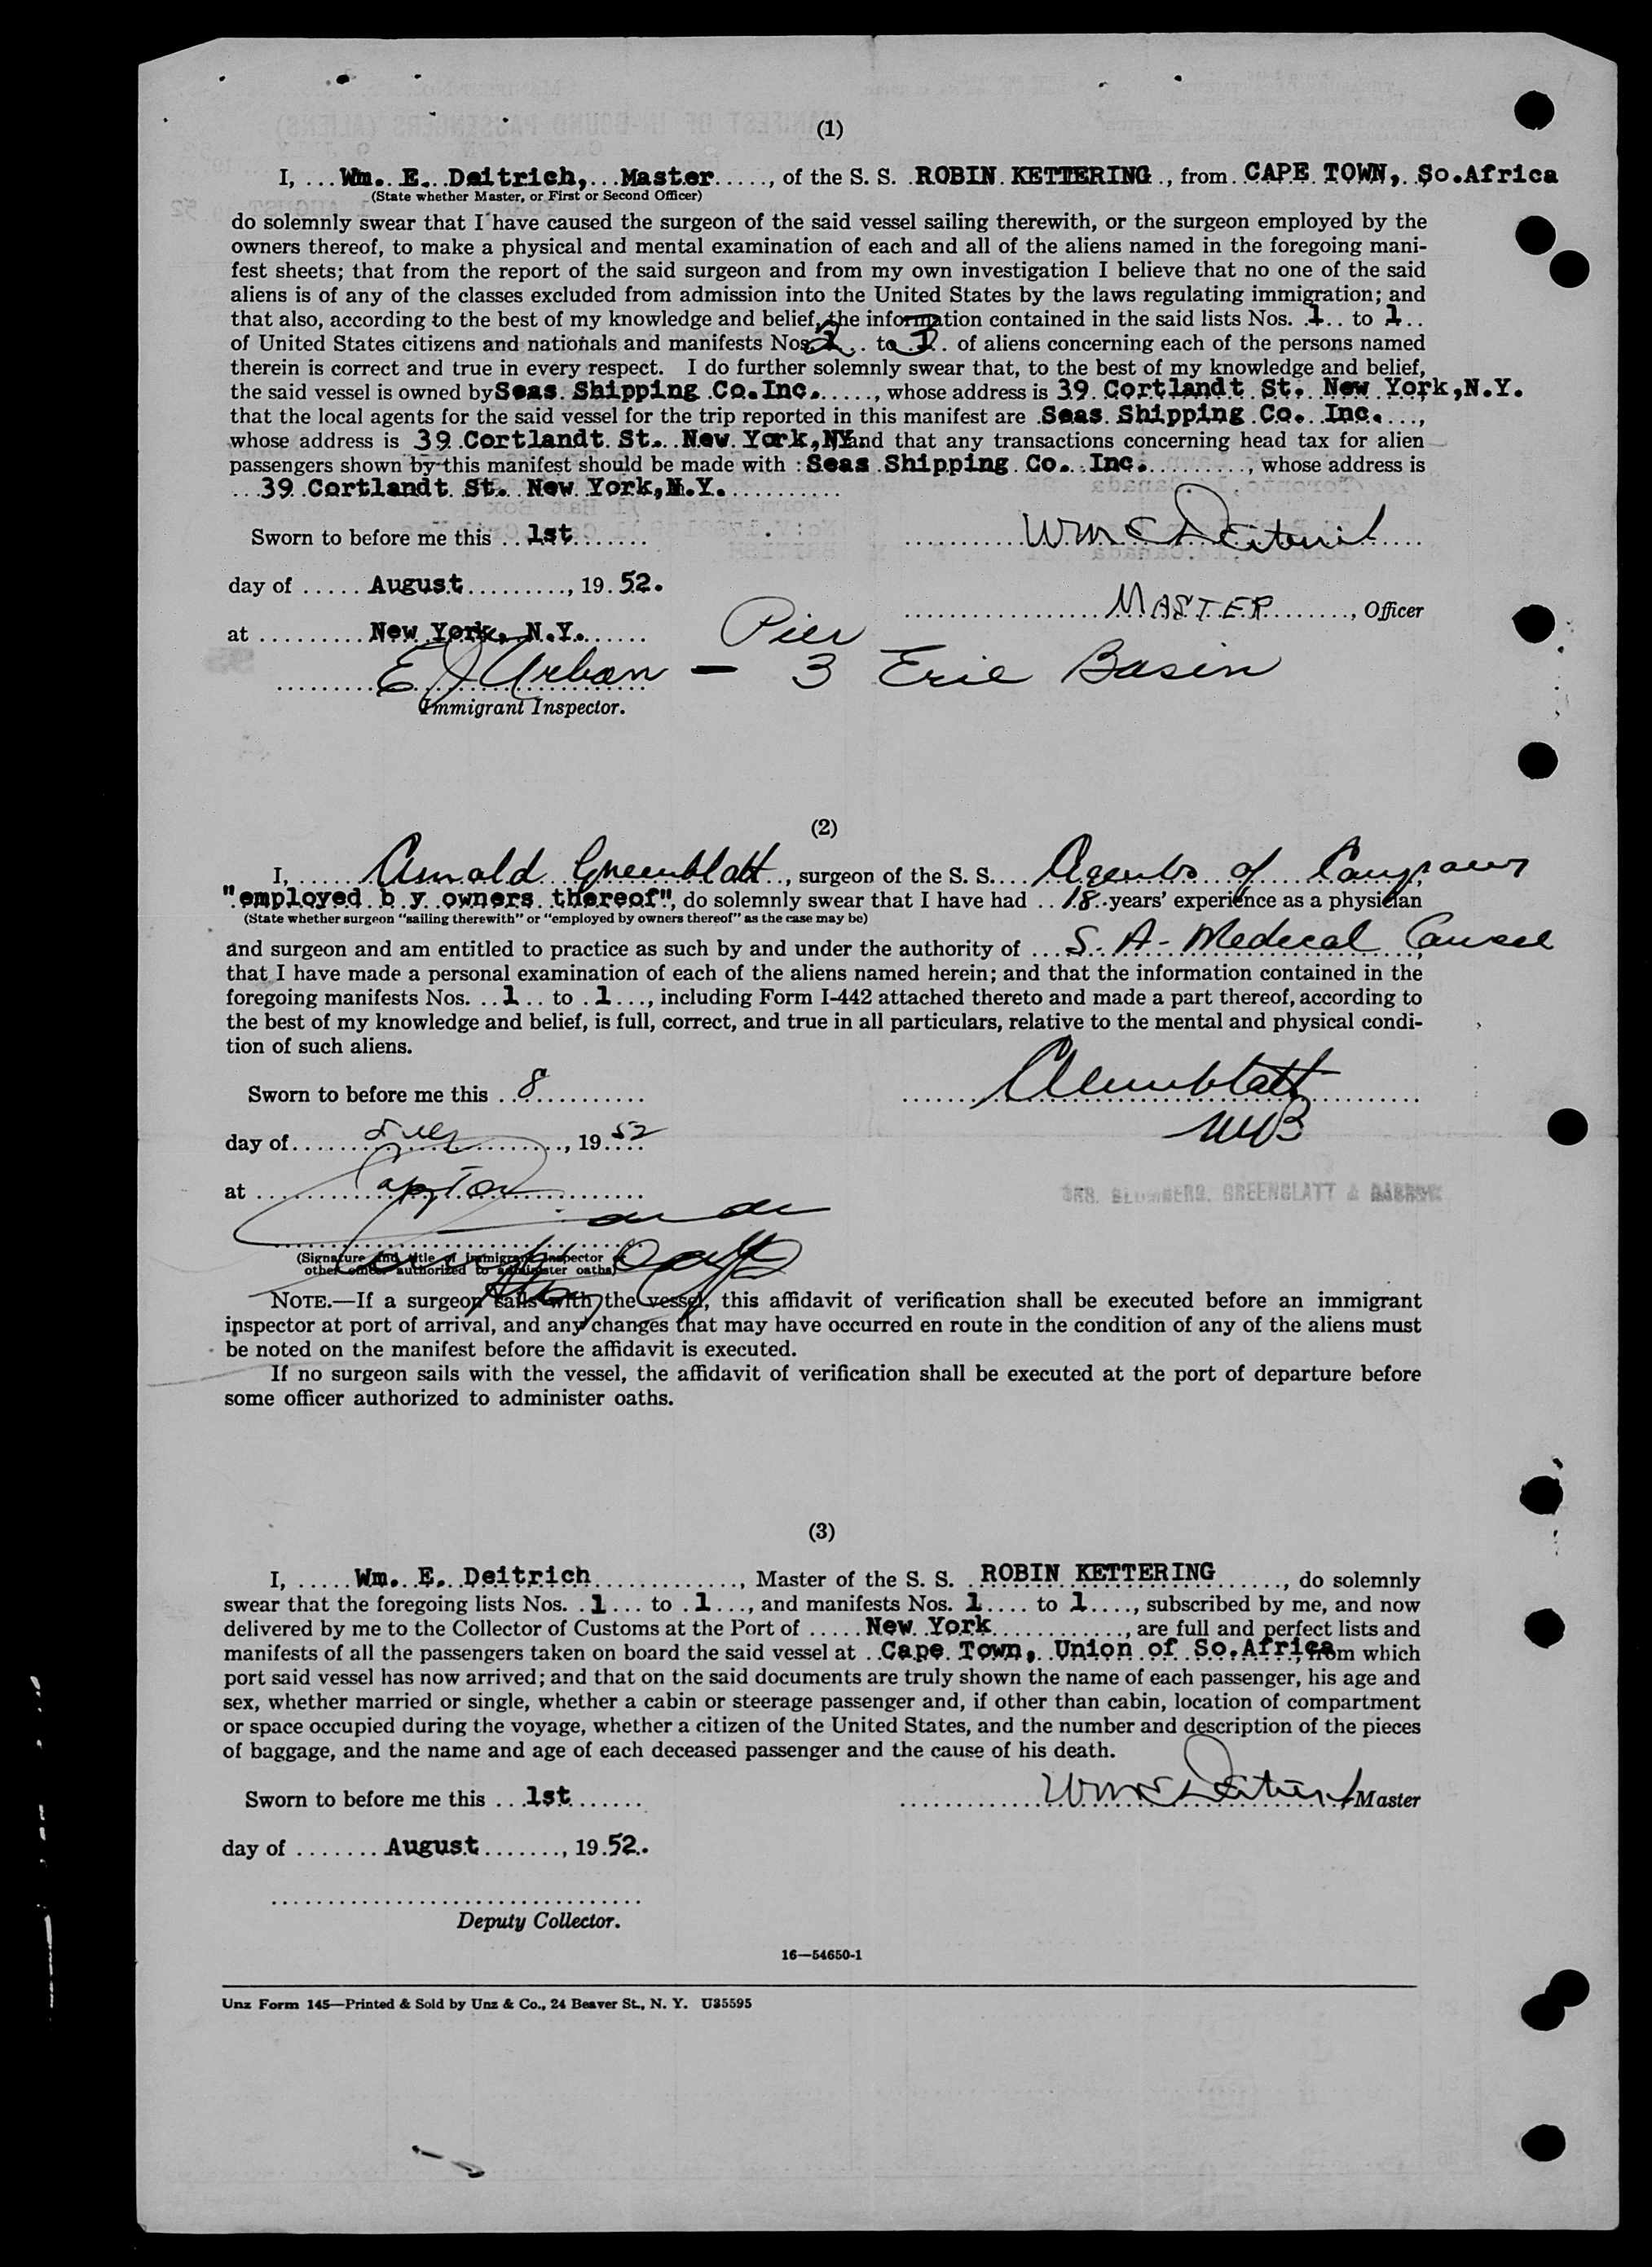 (1)
I, ... Wm. E. Deitrich, Master ....., of the S. S. ROBIN KETTERING, from CAPE TOWN, So.Africa
(State whether Master, or First or Second Officer)
do solemnly swear that I have caused the surgeon of the said vessel sailing therewith, or the surgeon employed by the
owners thereof, to make a physical and mental examination of each and all of the aliens named in the foregoing mani-
fest sheets; that from the report of the said surgeon and from my own investigation I believe that no one of the said
aliens is of any of the classes excluded from admission into the United States by the laws regulating immigration; and
that also, according to the best of my knowledge and belief, the information contained in the said lists Nos. 1 .. to 1 ..
of United States citizens and nationals and manifests Nos. 2 .. to 3 .. of aliens concerning each of the persons named
therein is correct and true in every respect. I do further solemnly swear that, to the best of my knowledge and belief,
the said vessel is owned by Seas Shipping Co.Inc. ....., whose address is 39 Cortlandt St. New York,N.Y.
that the local agents for the said vessel for the trip reported in this manifest are Seas Shipping Co. Inc. ....,
whose address is 39 Cortlandt St. New York,NY and that any transactions concerning head tax for alien
passengers shown by this manifest should be made with : Seas Shipping Co. Inc. ........., whose address is
... 39 Cortlandt St. New York,N.Y. ...........
Sworn to before me this .. 1st ....... Wm E Deitrich
day of ..... August .........., 19 52.
MASTER ......, Officer
at ......... New York, N.Y. ...... Pier
E J Urban — 3 Erie Basin
Immigrant Inspector.
(2)
I, ...... Arnold Greenblatt .., surgeon of the S. S. ... Agents of Company
"employed b y owners thereof", do solemnly swear that I have had .. 18 .. years' experience as a physician
(State whether surgeon "sailing therewith" or "employed by owners thereof" as the case may be)
and surgeon and am entitled to practice as such by and under the authority of ... S. A- Medical Council
that I have made a personal examination of each of the aliens named herein; and that the information contained in the
foregoing manifests Nos. .. 1 .. to . 1 ..., including Form I-442 attached thereto and made a part thereof, according to
the best of my knowledge and belief, is full, correct, and true in all particulars, relative to the mental and physical condi-
tion of such aliens.
Sworn to before me this .. 8 .......... AGreenblatt
MB
day of ...... July .........., 19 52
at ........ CapeTown
DRS. BLUMBERG, GREENBLATT &
(Signature and title of immigrant inspector or
other officer authorized to administer oaths)
NOTE.—If a surgeon sails with the vessel, this affidavit of verification shall be executed before an immigrant
inspector at port of arrival, and any changes that may have occurred en route in the condition of any of the aliens must
be noted on the manifest before the affidavit is executed.
If no surgeon sails with the vessel, the affidavit of verification shall be executed at the port of departure before
some officer authorized to administer oaths.
(3)
I, ..... Wm. E. Deitrich .............., Master of the S. S. ROBIN KETTERING ......, do solemnly
swear that the foregoing lists Nos. . 1 ... to . 1 ..., and manifests Nos. 1 .... to 1 ...., subscribed by me, and now
delivered by me to the Collector of Customs at the Port of ..... New York ............, are full and perfect lists and
manifests of all the passengers taken on board the said vessel at .. Cape Town, Union of So.Africa, from which
port said vessel has now arrived; and that on the said documents are truly shown the name of each passenger, his age and
sex, whether married or single, whether a cabin or steerage passenger and, if other than cabin, location of compartment
or space occupied during the voyage, whether a citizen of the United States, and the number and description of the pieces
of baggage, and the name and age of each deceased passenger and the cause of his death.
Sworn to before me this ... 1st ....... Wm E Deitrich Master
day of ....... August ......., 19 52.
Deputy Collector.
16—54650-1
Unz Form 145—Printed & Sold by Unz & Co., 24 Beaver St., N. Y. U35595